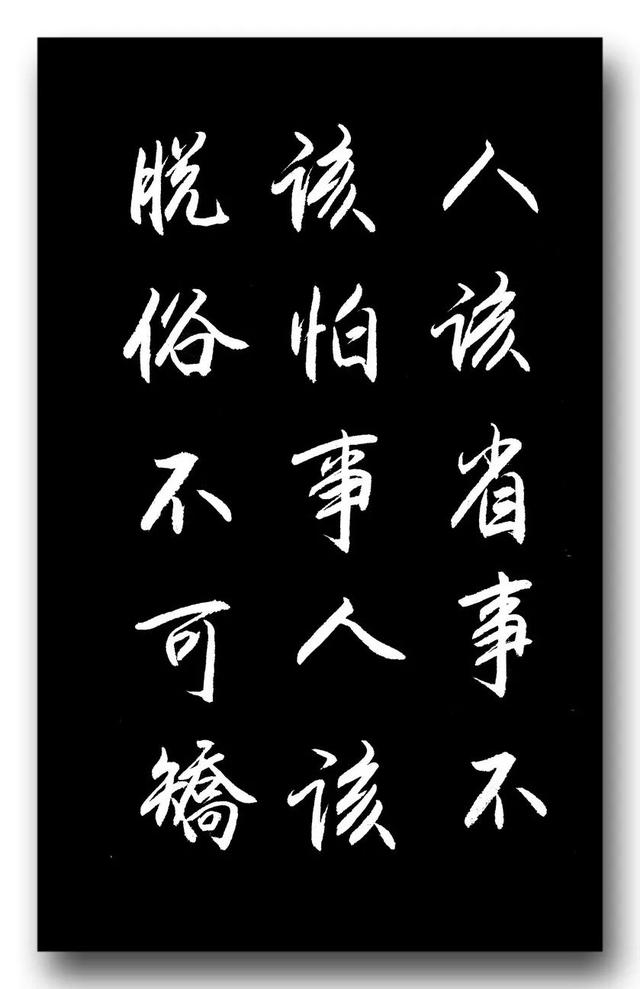 人该省事不
该怕事人该
脱俗不可矯